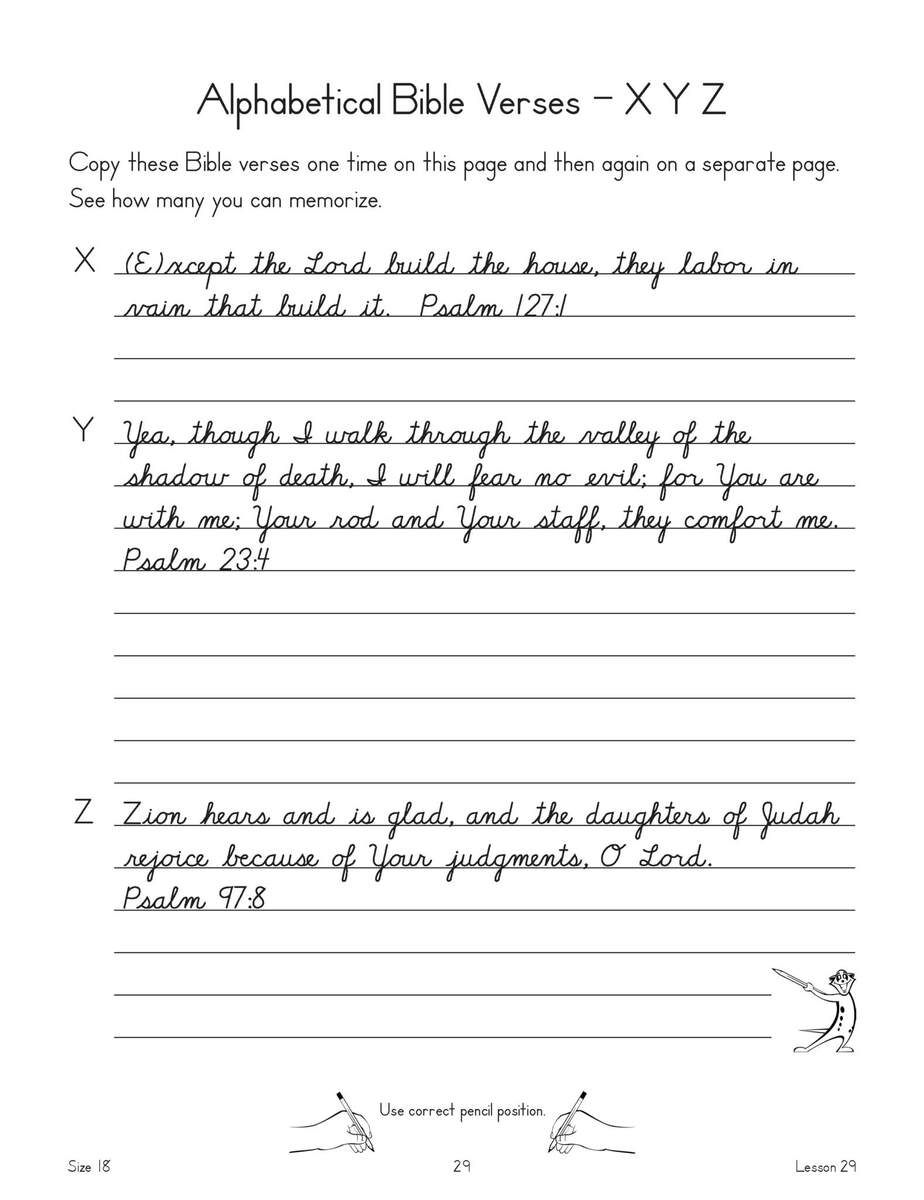 Alphabetical Bible Verses – X Y Z
Copy these Bible verses one time on this page and then again on a separate page.
See how many you can memorize.
X (E)xcept the Lord build the house, they labor in
vain that build it. Psalm 127:1
Y Yea, though I walk through the valley of the
shadow of death, I will fear no evil; for You are
with me; Your rod and Your staff, they comfort me.
Psalm 23:4
Z Zion hears and is glad, and the daughters of Judah
rejoice because of Your judgments, O Lord.
Psalm 97:8
Use correct pencil position.
Size 18 29 Lesson 29